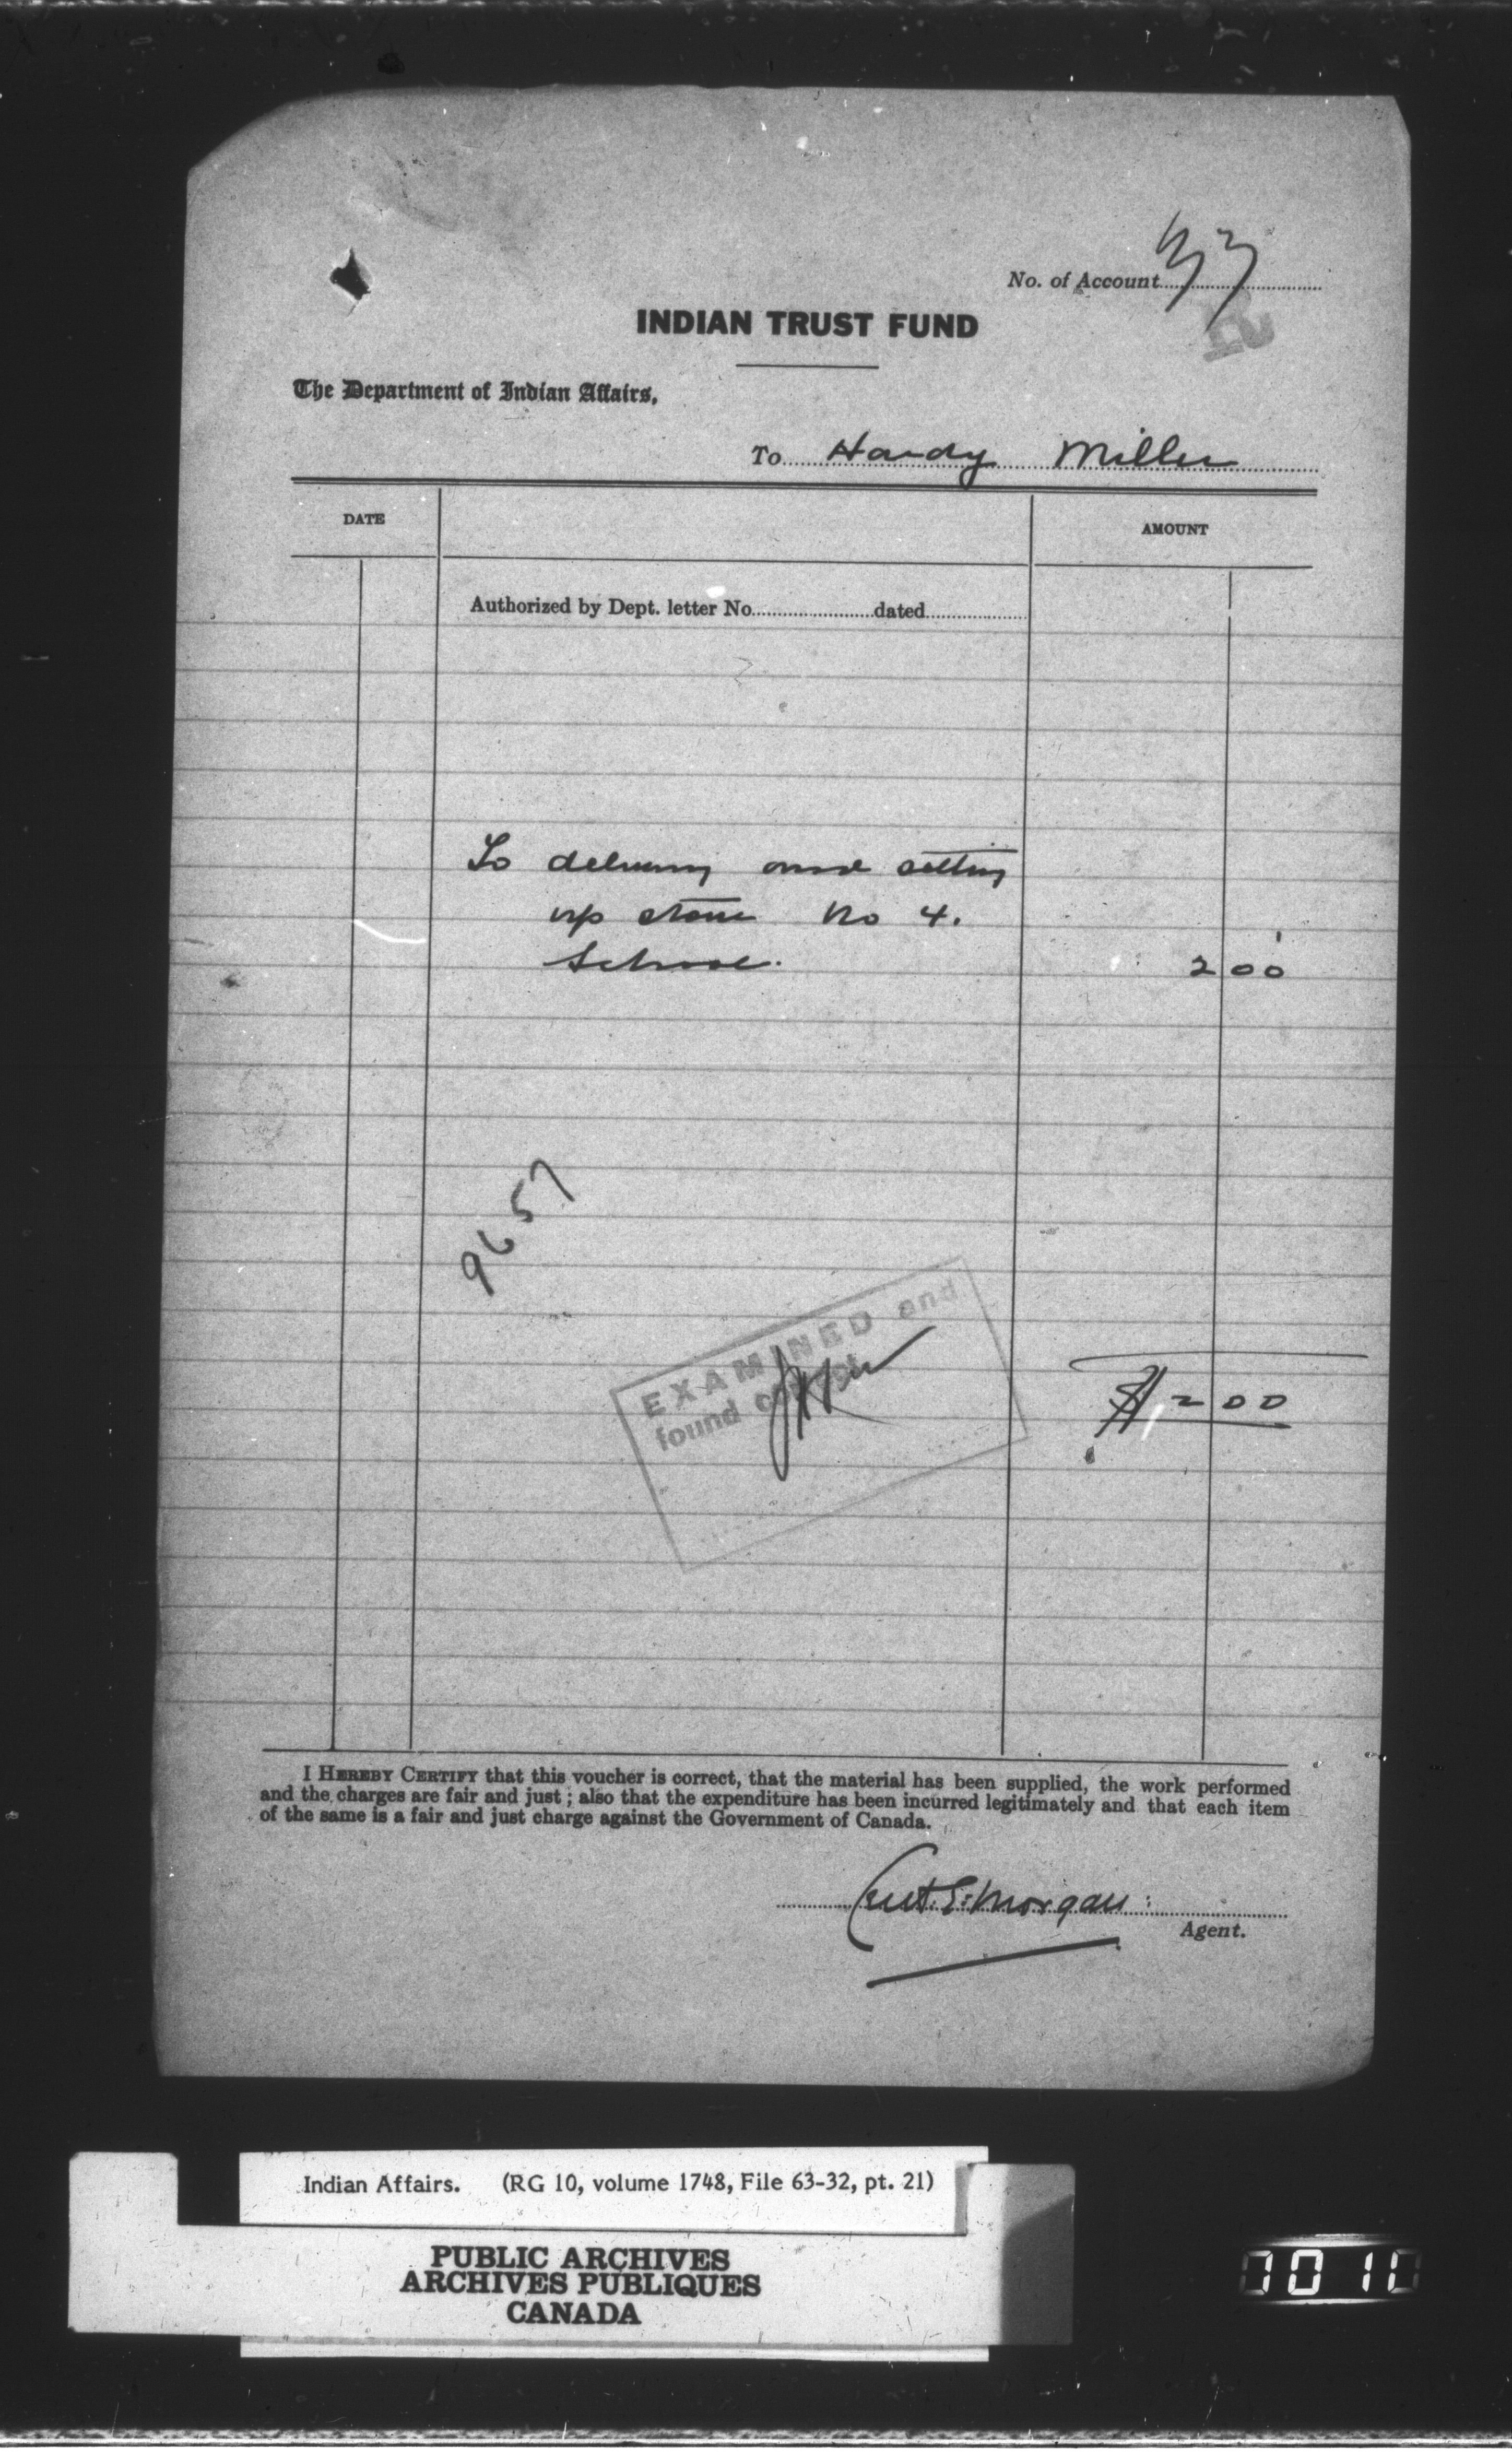 No. of Account 33
INDIAN TRUST FUND
The Department of Indian Affairs,
To Hardy Miller
DATE AMOUNT
Authorized by Dept. letter No. dated
To delivering and setting
up stove No 4.
School. 2 00
9657
EXAMINED and
found correct
$ 2 00
I HEREBY CERTIFY that this voucher is correct, that the material has been supplied, the work performed
and the charges are fair and just; also that the expenditure has been incurred legitimately and that each item
of the same is a fair and just charge against the Government of Canada.
E. Morgan
Agent.
Indian Affairs. (RG 10, volume 1748, File 63-32, pt. 21)
PUBLIC ARCHIVES
ARCHIVES PUBLIQUES
CANADA